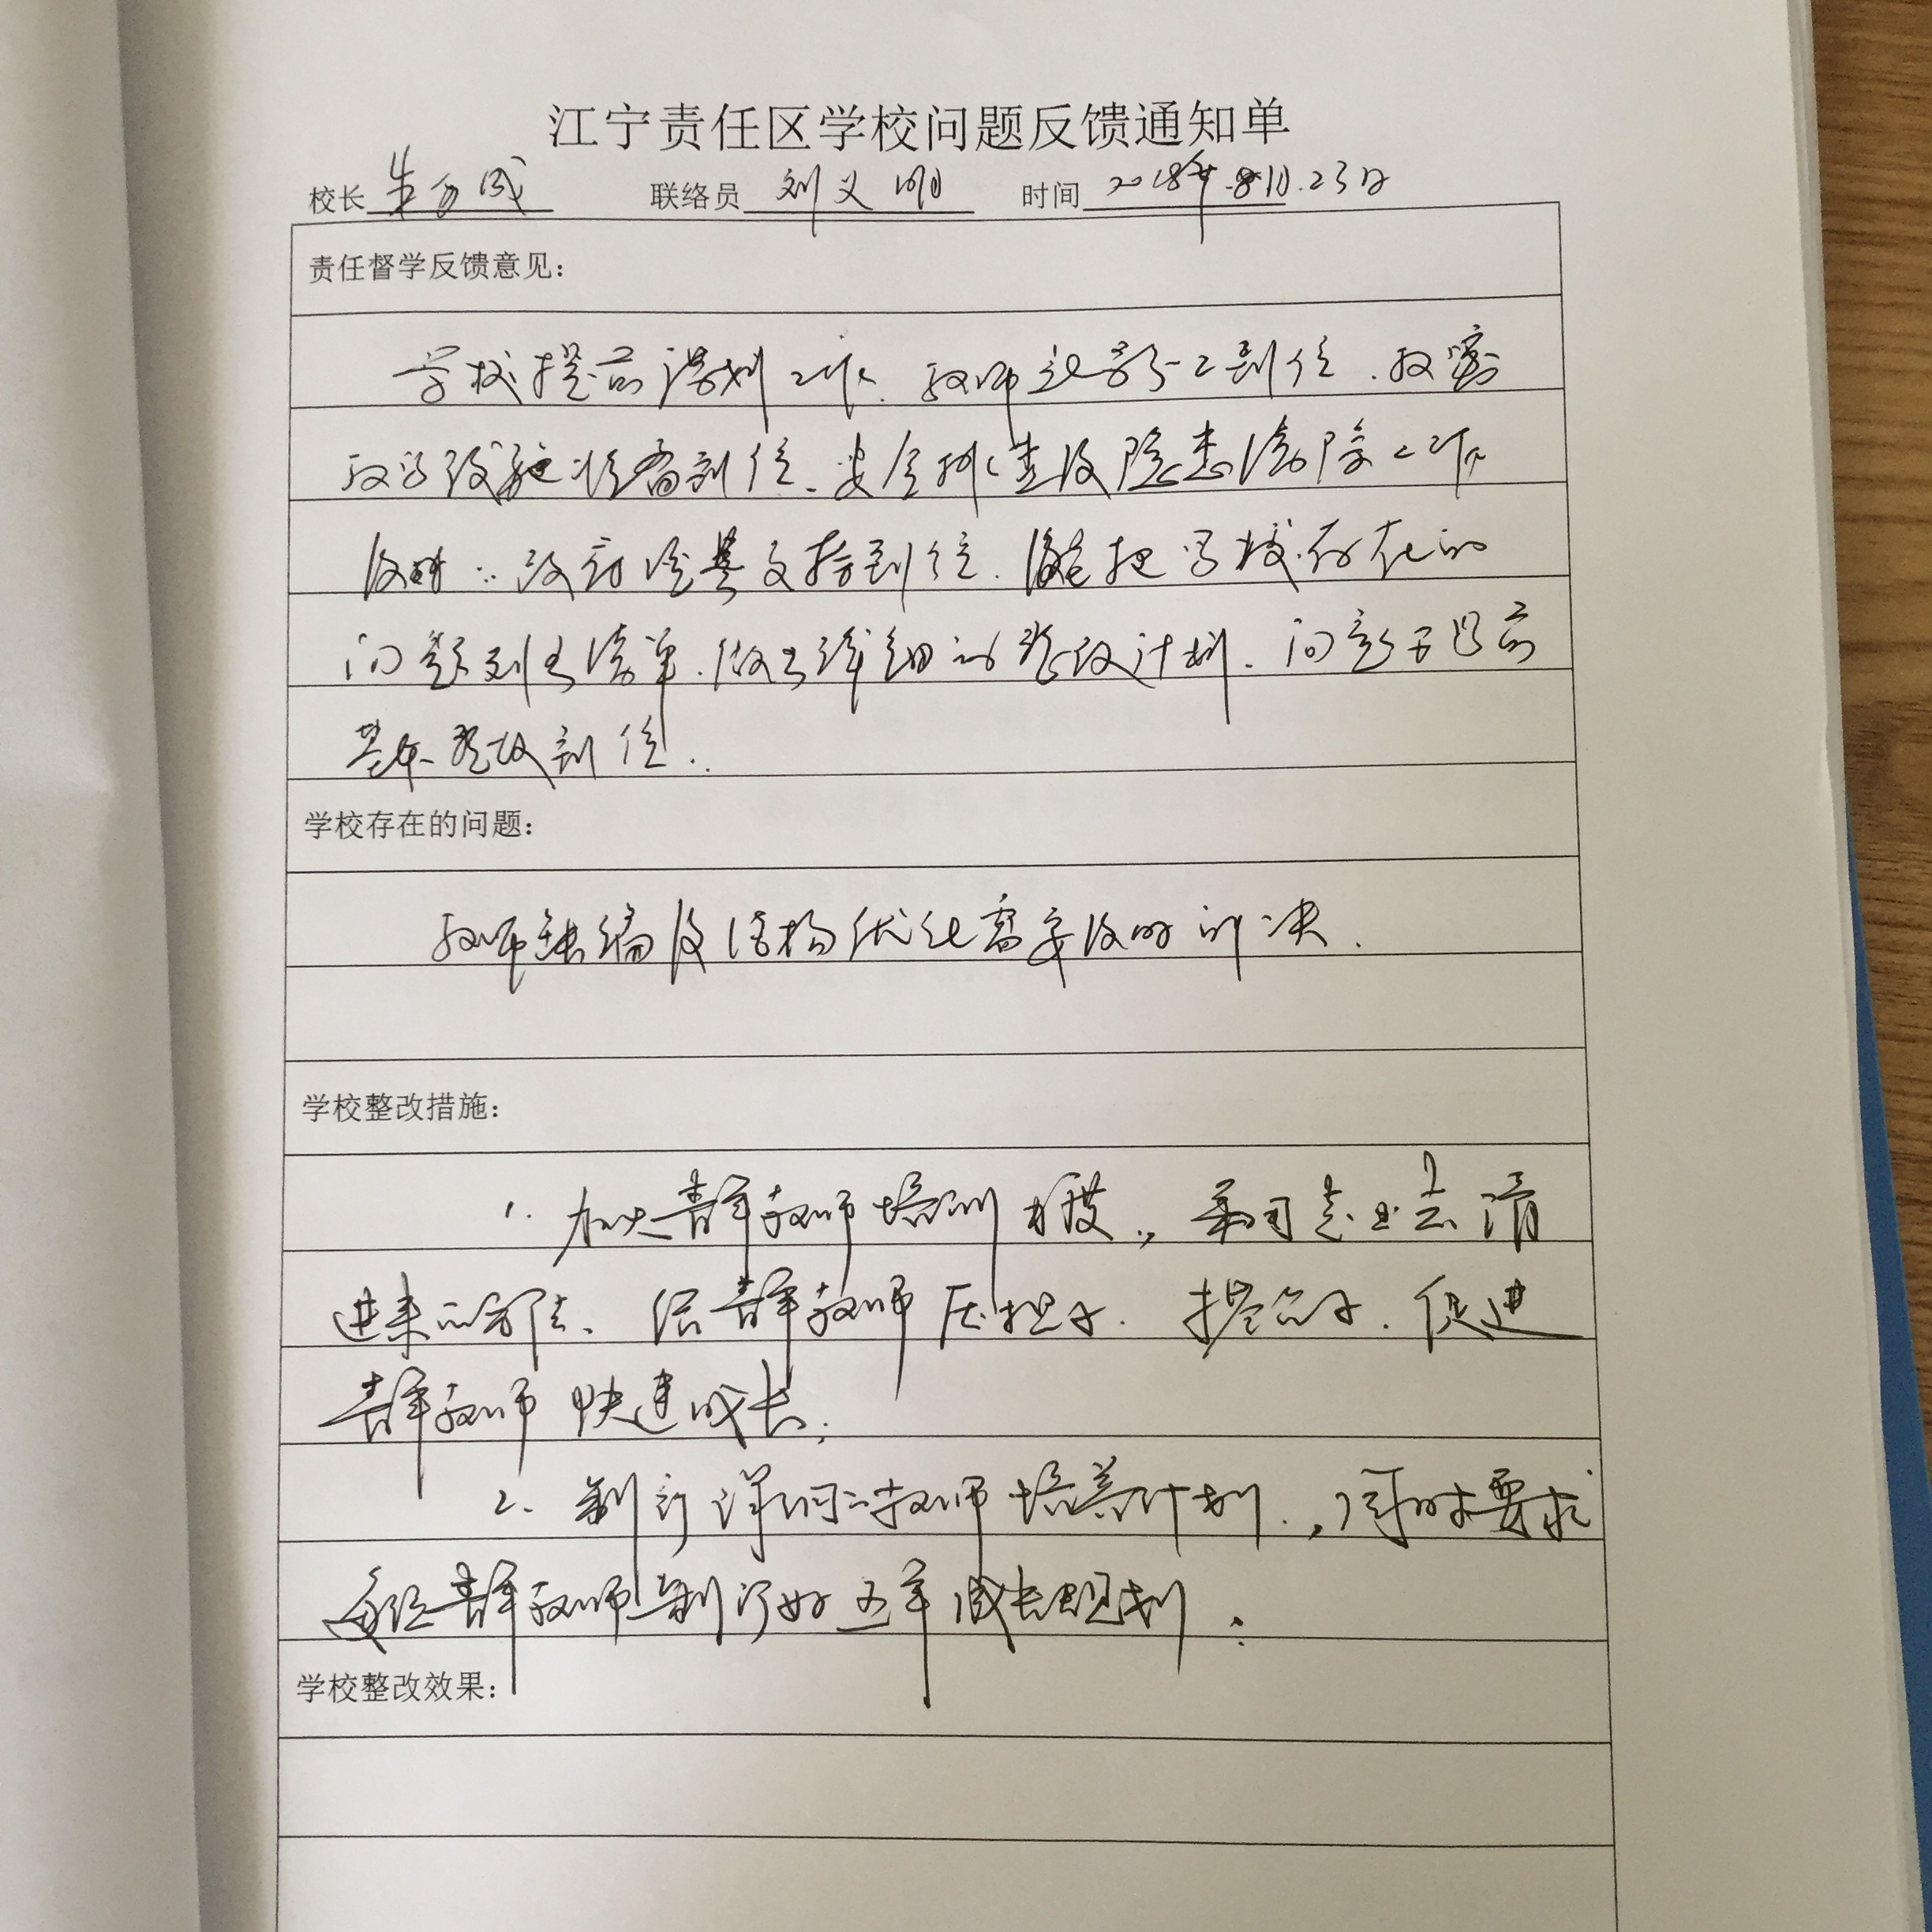 江宁责任区学校问题反馈通知单
校长 朱万成 联络员 刘义明 时间 2018年10.23日
责任督学反馈意见：
学校提前谋划工作、教师分工到位、教室
教学设施准备到位、安全排查及隐患清除工作
及时；政府资基支持到位、能把学校存在的
问题列出清单、做出详细的整改计划、问题于目前
基本整改到位.
学校存在的问题：
教师缺编及结构优化需要及时解决.
学校整改措施：
1. 加大青年教师培训力度，采用走出去请
进来的方法、给青年教师压担子、搭台子、促进
青年教师快速成长；
2. 制订详细的教师培养计划，同时要求
每位青年教师制订好五年成长规划；
学校整改效果：